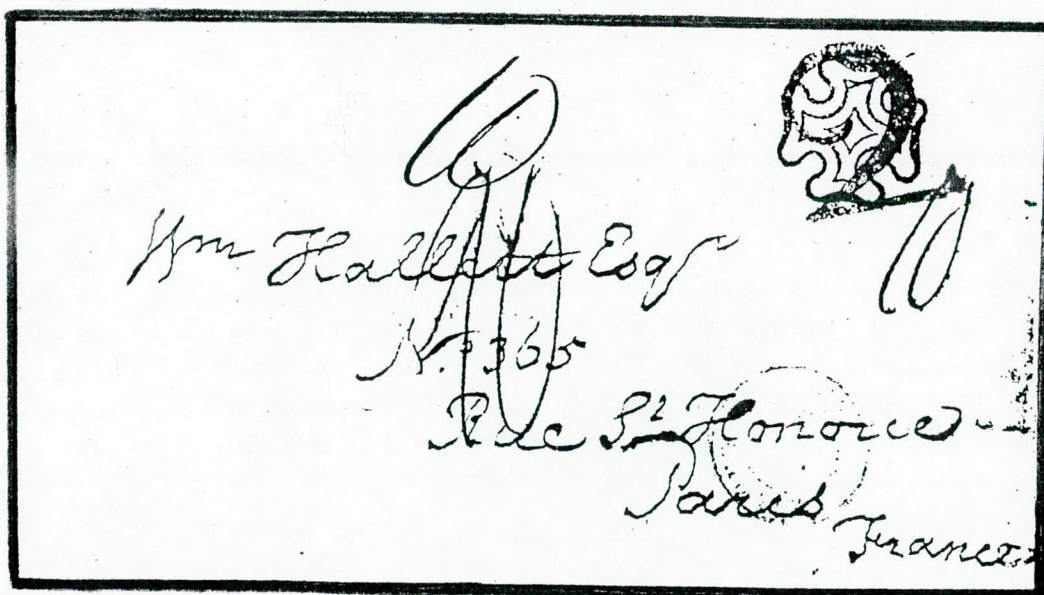 Wm Hallett Esqr
No. 365
Rue St. Honore
Paris
France